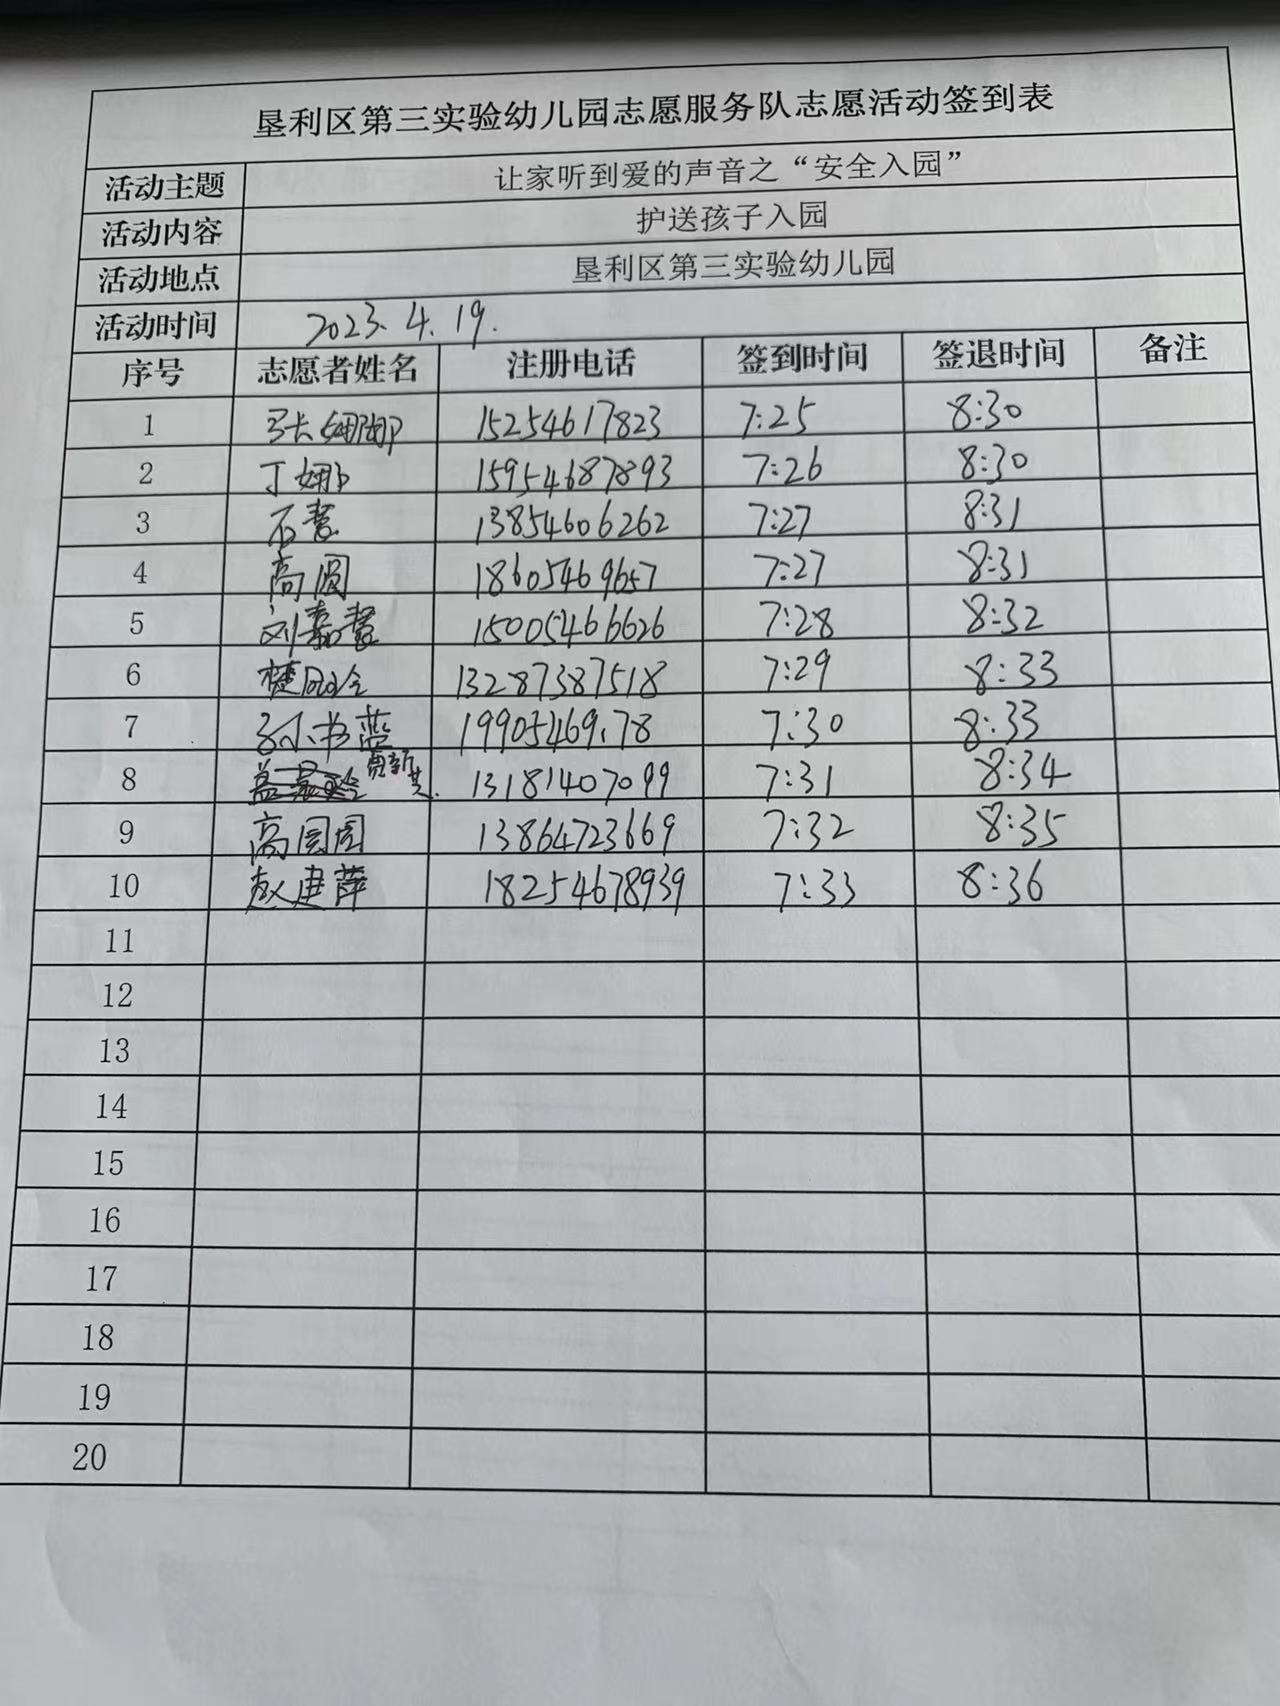 垦利区第三实验幼儿园志愿服务队志愿活动签到表
活动主题 让家听到爱的声音之“安全入园”
活动内容 护送孩子入园
活动地点 垦利区第三实验幼儿园
活动时间 2023.4.19.
序号 志愿者姓名 注册电话 签到时间 签退时间 备注
1 张娜娜 15254617823 7:25 8:30
2 丁娜 15954687893 7:26 8:30
3 石慧 13854606262 7:27 8:31
4 高圆 18605469657 7:27 8:31
5 刘嘉慧 15005466626 7:28 8:32
6 13287387518 7:29 8:33
7 孙书蓝 7:30 8:33
8 贾新芝 13181407099 7:31 8:34
9 高园园 13864723669 7:32 8:35
10 赵建萍 18254678939 7:33 8:36
11
12
13
14
15
16
17
18
19
20